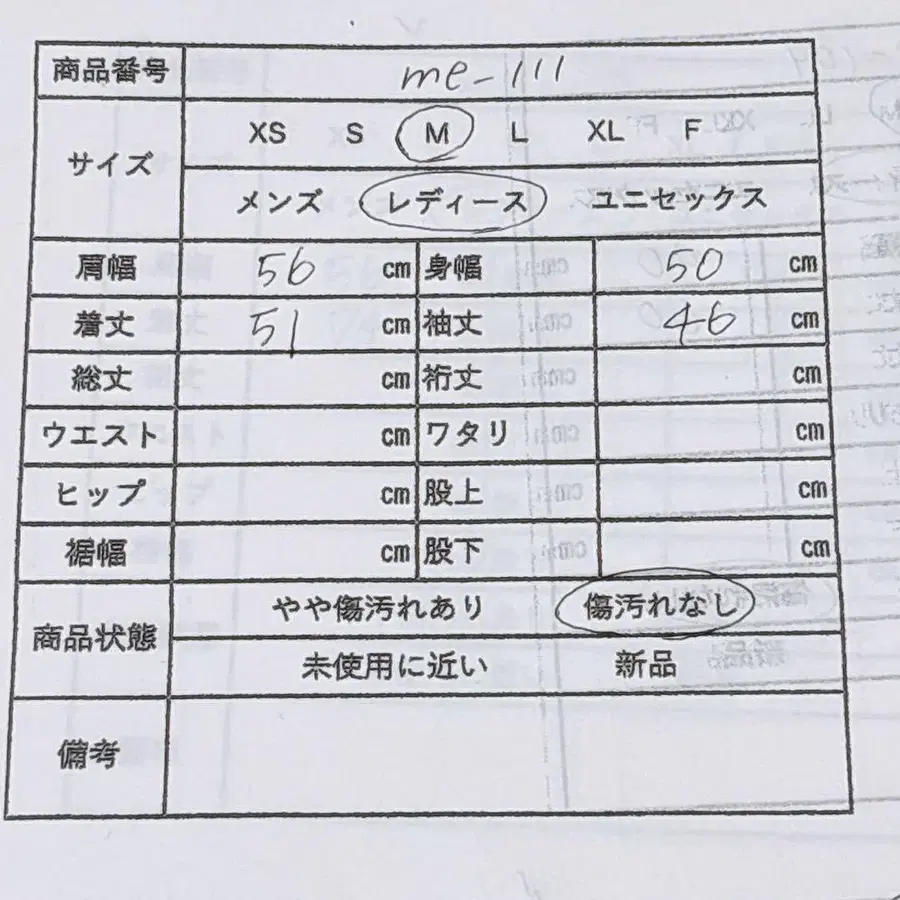 商品番号 me-111
サイズ
XS S M L XL F
メンズ レディース ユニセックス
肩幅 56 cm 身幅 50 cm
着丈 51 cm 袖丈 46 cm
総丈 cm 裄丈 cm
ウエスト cm ワタリ cm
ヒップ cm 股上 cm
裾幅 cm 股下 cm
商品状態
やや傷汚れあり 傷汚れなし
未使用に近い 新品
備考